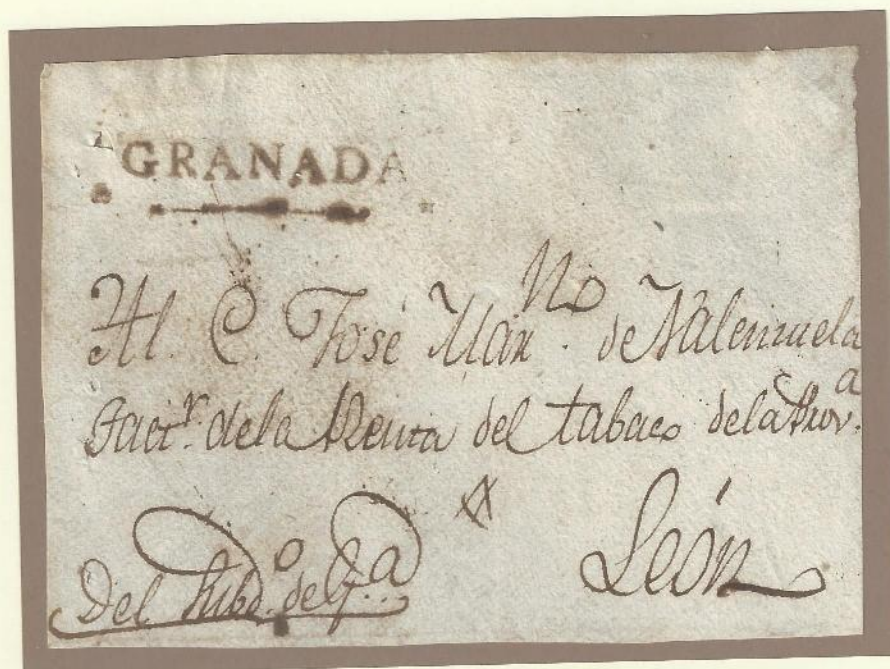 GRANADA
Al. C. José Mar.no de Valenzuela
Fact.r de la Renta del tabaco de la Prov.a
León
Del Subd.o de